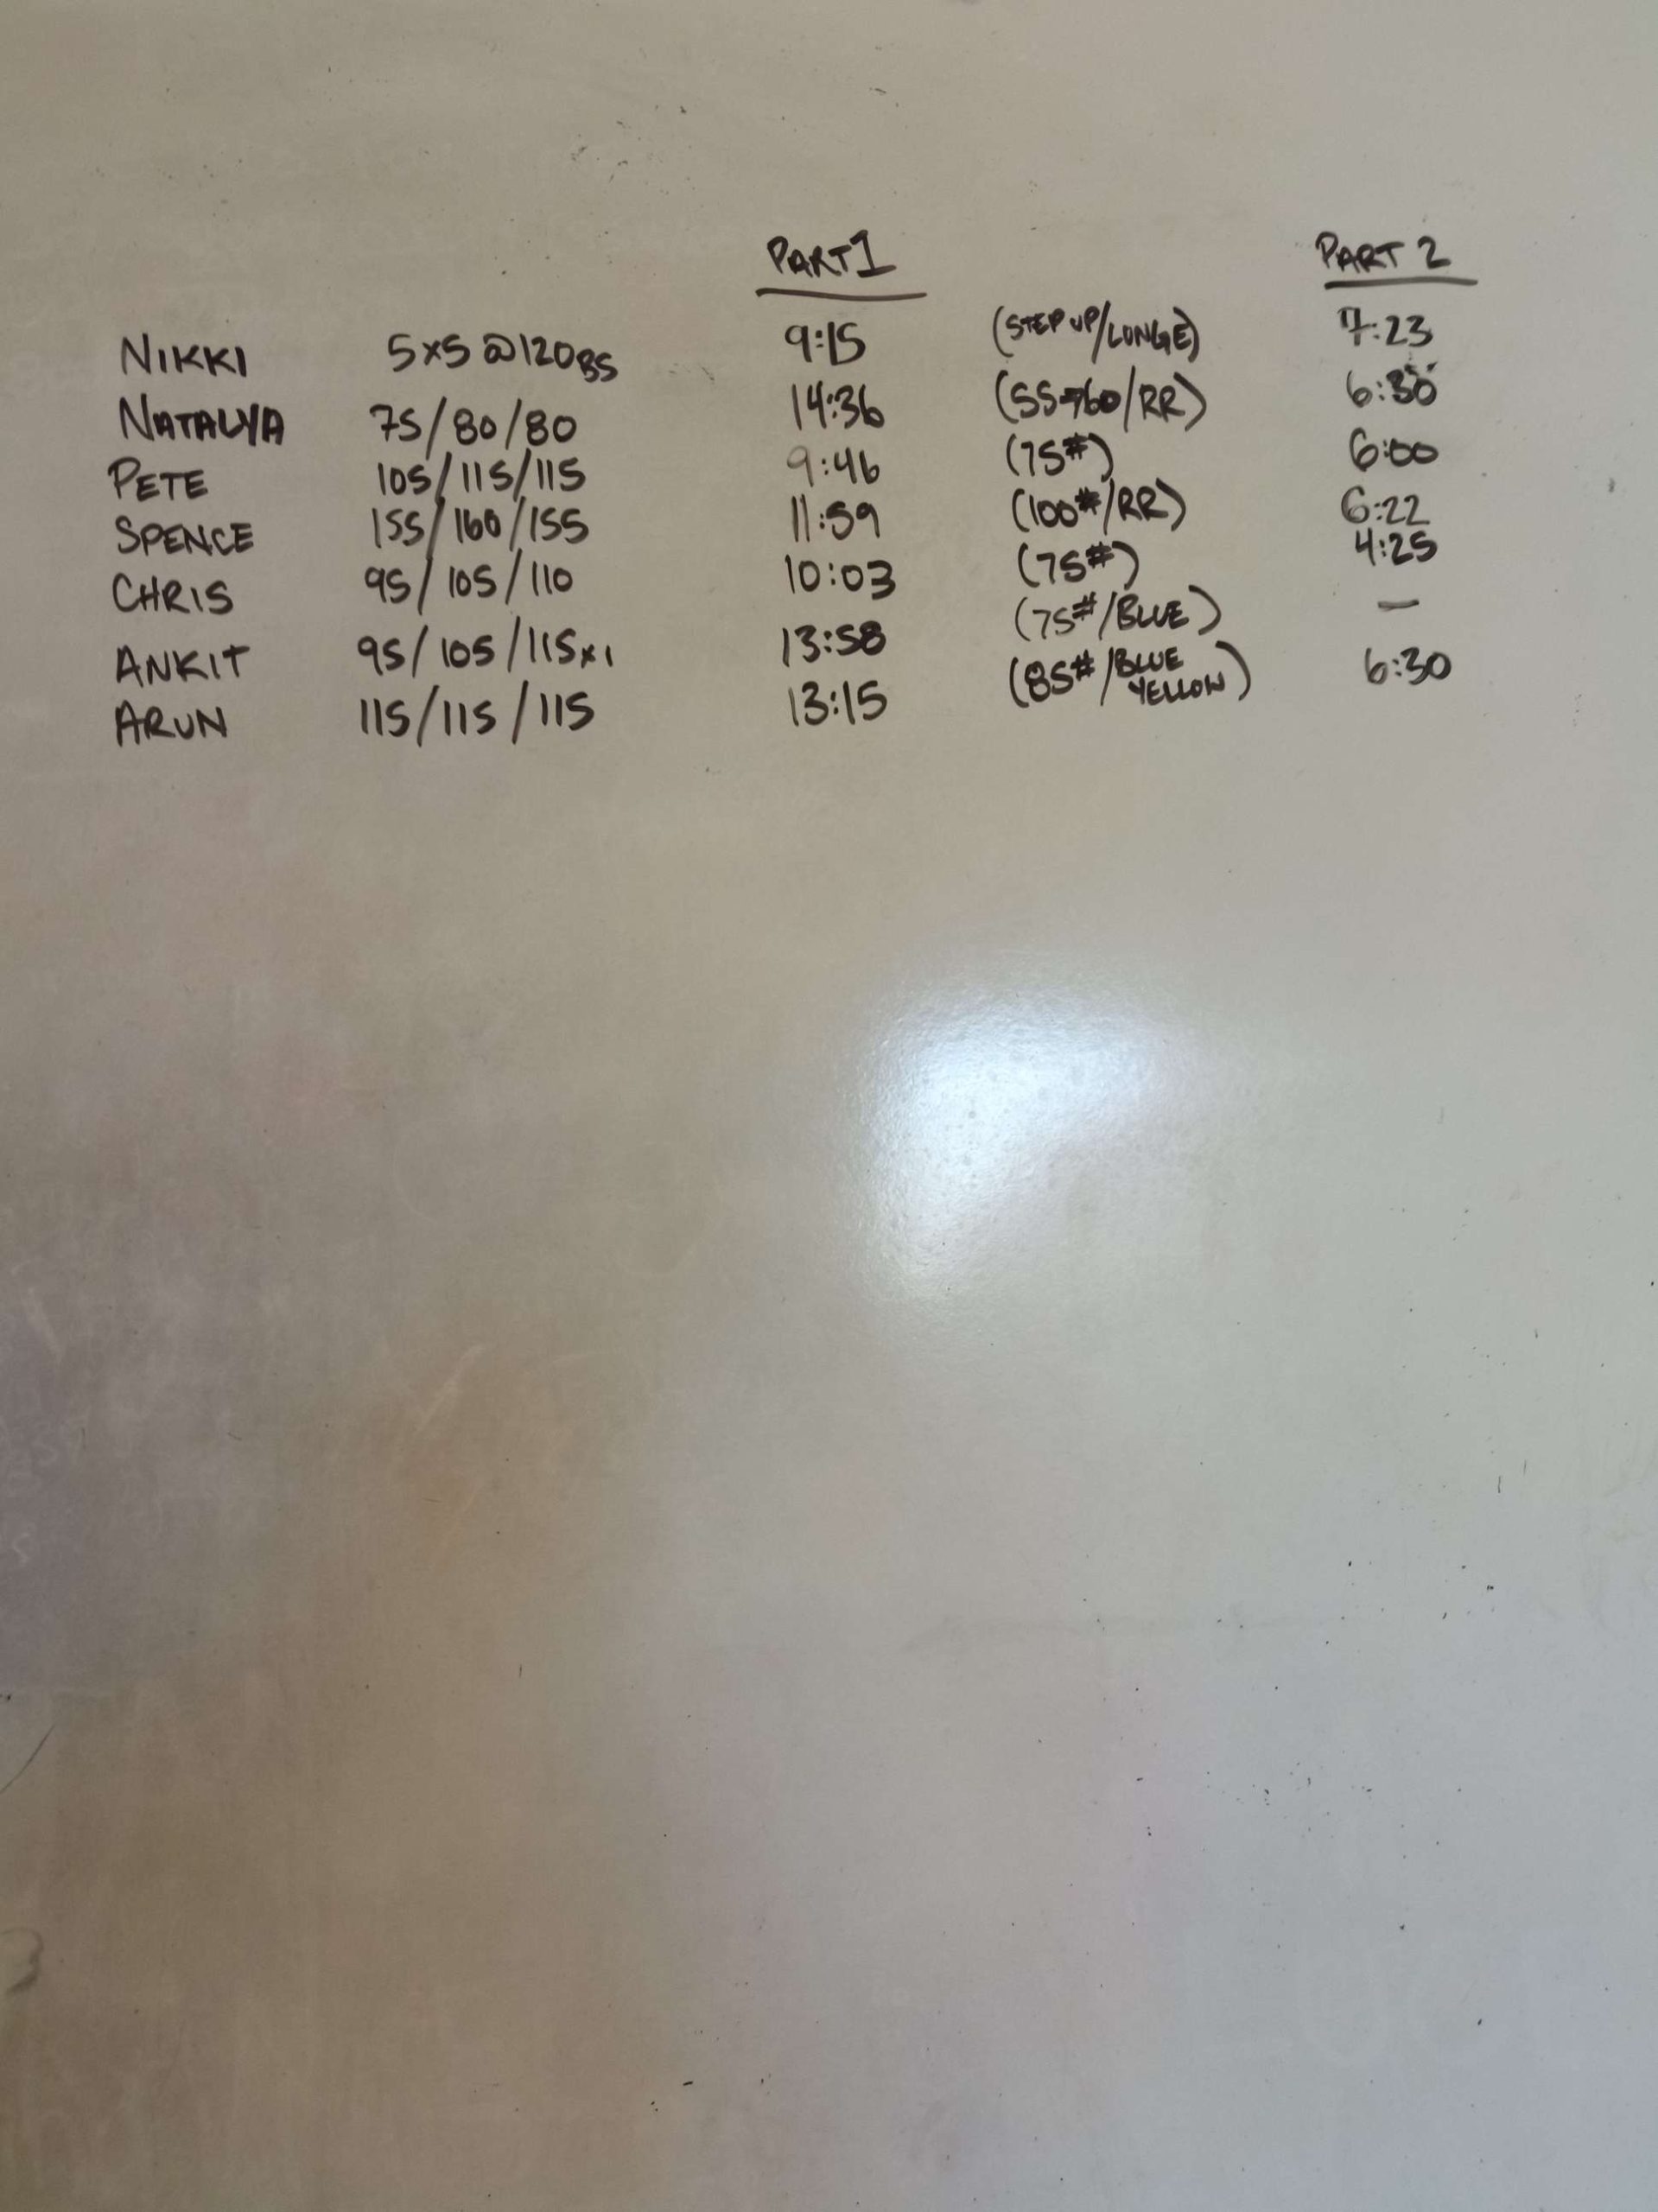 PART 1 PART 2
NIKKI 5x5 @120BS 9:15 (STEP UP/LUNGE) 7:23
NATALYA 75/80/80 14:36 (55→60/RR) 6:30
PETE 105/115/115 9:46 (75#) 6:00
SPENCE 155/160/155 11:59 (100#/RR) 6:22
CHRIS 95/105/110 10:03 (75#) 4:25
ANKIT 95/105/115x1 13:58 (75#/BLUE) —
ARUN 115/115/115 13:15 (85#/BLUE YELLOW) 6:30